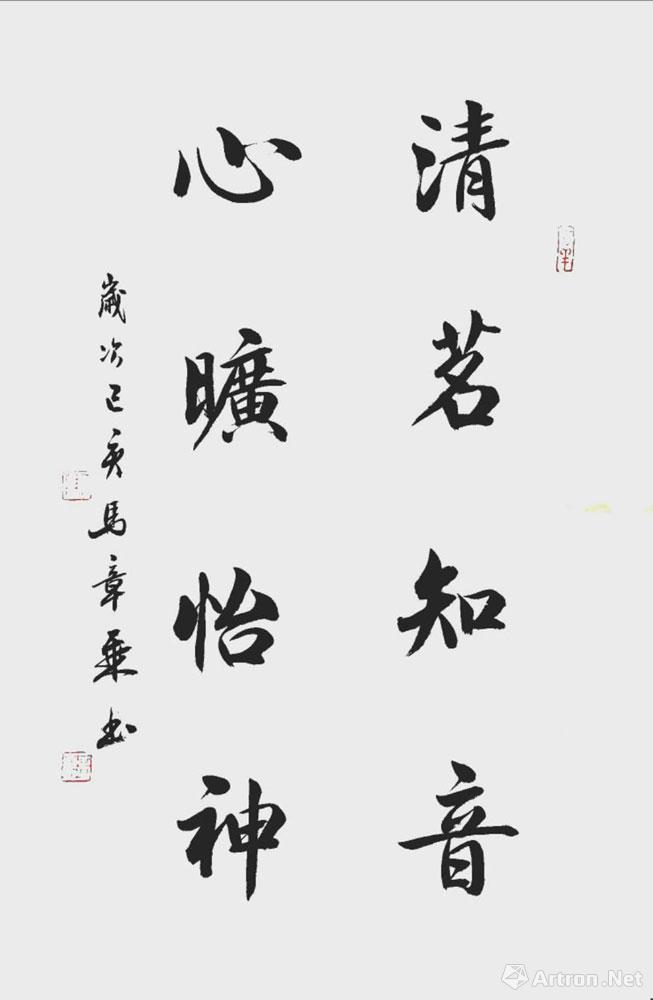 清茗知音
心曠怡神
歲次己亥馬章乘書
Artron.Net